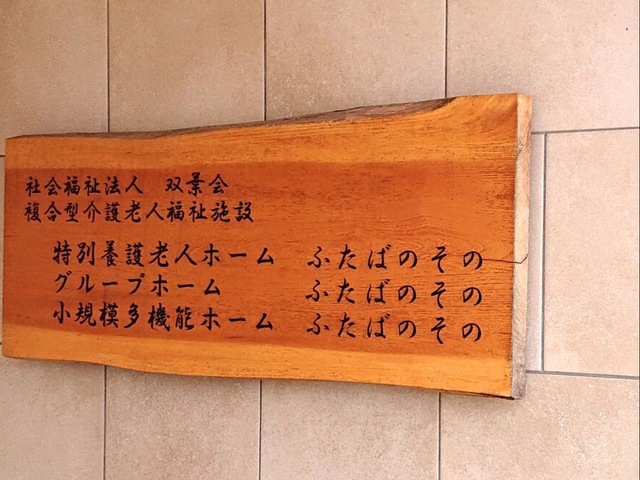 社会福祉法人　双葉会
複合型介護老人福祉施設
特別養護老人ホーム　ふたばのその
グループホーム　ふたばのその
小規模多機能ホーム　ふたばのその